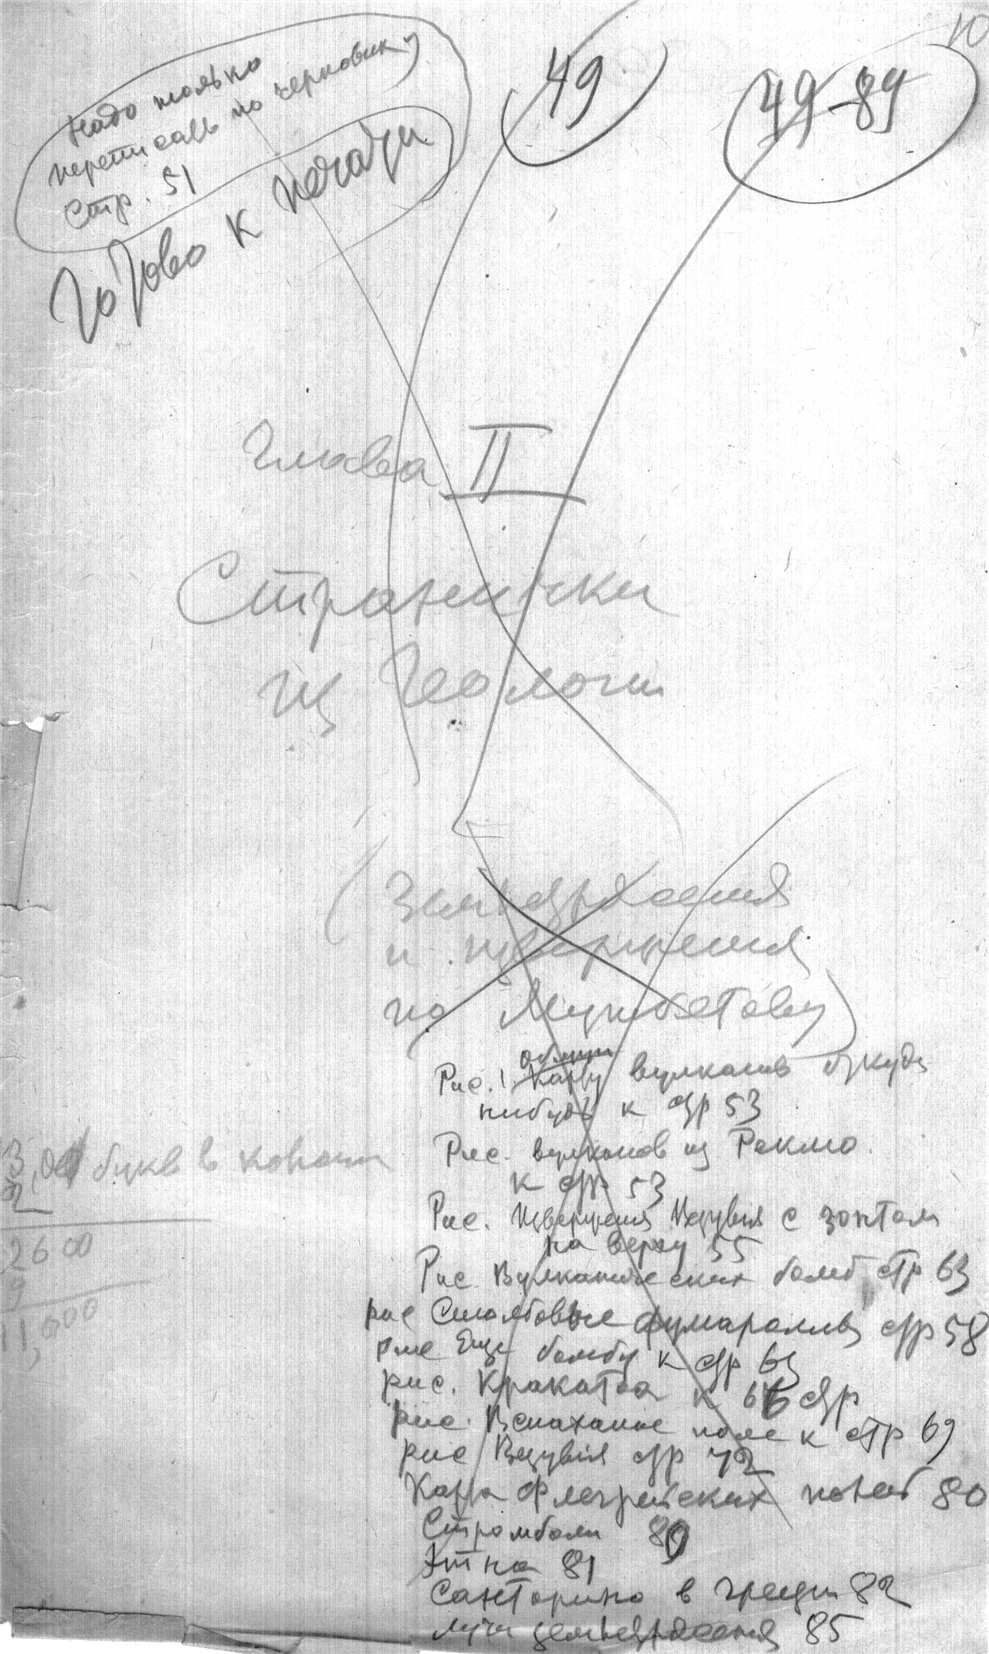 10
Надо только
переписать по черновику
Стр. 51
Готово к печати
49
49-89
Глава II
Странички
из Геологии
(Землетрясения
и извержения
по Мушкетову)
Рис. 1. Карту вулканов откуда
нибудь к стр 53
Рис. вулканов из Реклю
к стр 53
Рис. Извержения Везувия с зонтом
на верху 55
Рис Вулканических бомб стр 63
рис Столбовые фумароллы стр 58
рис Еще бомбу к стр 63
рис. Кракатоа к 66 стр
рис. Вспаханное поле к стр 69
рис Везувия стр 72
Карта Флегрейских полей 80
Стромболи 80
Этна 81
Санторино в Греции 82
землетрясения 85
букв в
2600
9